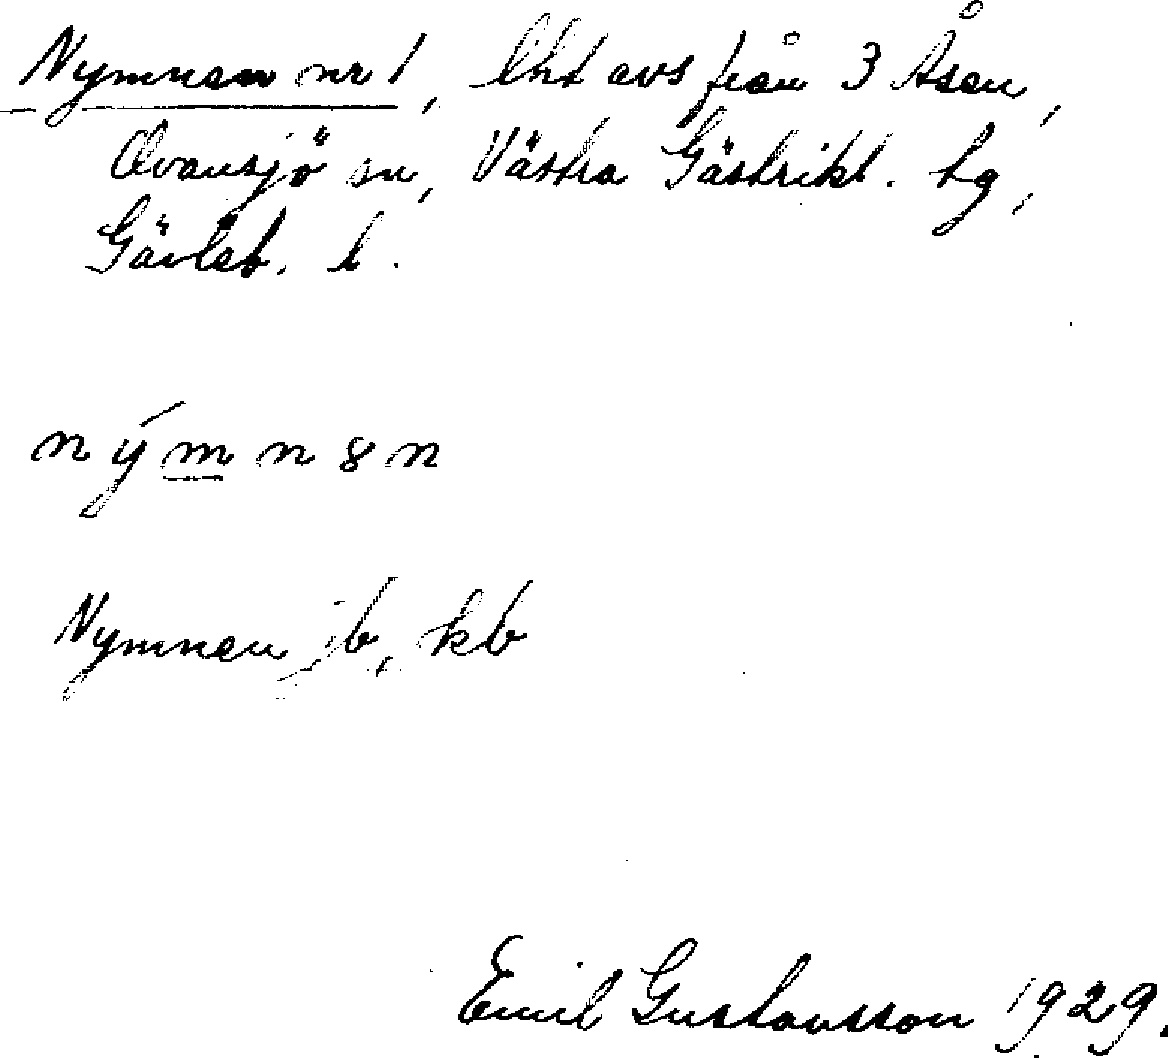 Nymnen nr 1, lht avs från 3 Åsen,
Ovansjö sn, Västra Gästrikl. tg,
Gävleb. l.
n ý m n 8 n
Nymnen jb, kb
Emil Gustavsson 1929.